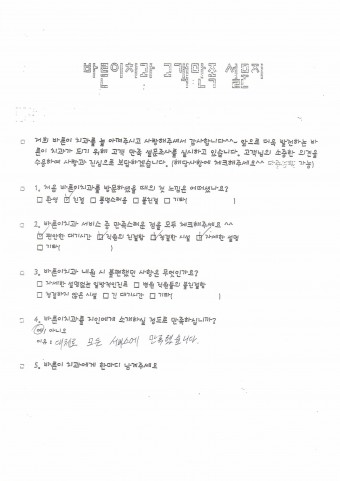 바른이치과 고객만족 설문지
저희 바른이 치과를 늘 아껴주시고 사랑해주셔서 감사합니다^^ 앞으로 더욱 발전하는 바
른이 치과가 되기 위해 고객 만족 설문조사를 실시하고 있습니다. 고객님의 소중한 의견을
수용하여 사랑과 진심으로 보답하겠습니다. (해당사항에 체크해주세요^^ 다중선택 가능)
1. 처음 바른이치과를 방문하셨을 때의 첫 느낌은 어떠셨나요?
□ 환상 ☑ 친절 □ 불명스러움 □ 불친절 □ 기타( )
2. 바른이치과 서비스 중 만족스러운 점을 모두 체크해주세요 ^^
☑ 편안한 대기시간 ☑ 직원의 친절함 ☑ 청결한 시설 ☑ 자세한 설명
□ 기타( )
3. 바른이치과 내원 시 불편했던 사항은 무엇인가요?
□ 자세한 설명없는 일방적인진료 □ 병원 직원들의 불친절함
□ 청결하지 않은 시설 □ 긴 대기시간 □ 기타( )
4. 바른이치과를 지인에게 소개하실 정도로 만족하십니까?
예/ 아니오
이유 : 대체로 모든 서비스에 만족했습니다.
5. 바른이 치과에게 한마디 남겨주세요